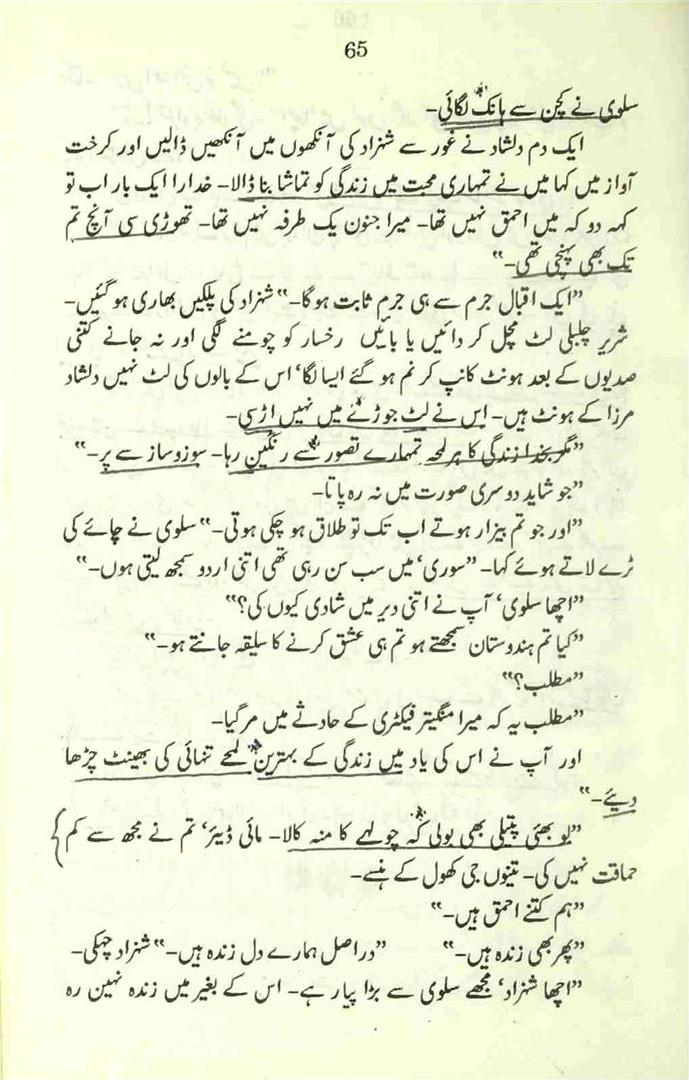 65
سلوی نے کچن سے ہانک لگائی-
ایک دم دلشاد نے غور سے شہزاد کی آنکھوں میں آنکھیں ڈالیں اور کرخت
آواز میں کہا میں نے تمہاری محبت میں زندگی کو تماشا بنا ڈالا- خدارا ایک بار اب تو
کہہ دو کہ میں احمق نہیں تھا- میرا جنون یک طرفہ نہیں تھا- تھوڑی سی آنچ تم
تک بھی پہنچی تھی-"
"ایک اقبال جرم سے ہی جرم ثابت ہوگا-" شہزاد کی پلکیں بھاری ہو گئیں-
شریر چلبلی لٹ مچل کر دائیں یا بائیں رخسار کو چومنے لگی اور نہ جانے کتنی
صدیوں کے بعد ہونٹ کانپ کر نم ہو گئے ایسا لگا' اس کے بالوں کی لٹ نہیں دلشاد
مرزا کے ہونٹ ہیں- اس نے لٹ جوڑے میں نہیں اڑسی-
"مگر بخدا زندگی کا ہر لمحہ تمہارے تصور سے رنگین رہا- سوز و ساز سے پر-"
"جو شاید دوسری صورت میں نہ رہ پاتا-
"اور جو تم بیزار ہوتے اب تک تو طلاق ہو چکی ہوتی-" سلوی نے چائے کی
ٹرے لاتے ہوئے کہا- "سوری' میں سب سن رہی تھی اتنی اردو سمجھ لیتی ہوں-"
"اچھا سلوی' آپ نے اتنی دیر میں شادی کیوں کی؟"
"کیا تم ہندوستان سمجھتے ہو تم ہی عشق کرنے کا سلیقہ جانتے ہو-"
"مطلب؟"
"مطلب یہ کہ میرا منگیتر فیکٹری کے حادثے میں مر گیا-
اور آپ نے اس کی یاد میں زندگی کے بہترین لمحے تنہائی کی بھینٹ چڑھا
دیئے-"
"لو بھئی پتیلی بھی بولی کہ چولہے کا منہ کالا- مائی ڈیئر' تم نے مجھ سے کم
حماقت نہیں کی- تینوں جی کھول کے ہنسے-
"ہم کتنے احمق ہیں-"
"پھر بھی زندہ ہیں-" "دراصل ہمارے دل زندہ ہیں-" شہزاد چہکی-
"اچھا شہزاد' مجھے سلوی سے بڑا پیار ہے- اس کے بغیر میں زندہ نہین رہ